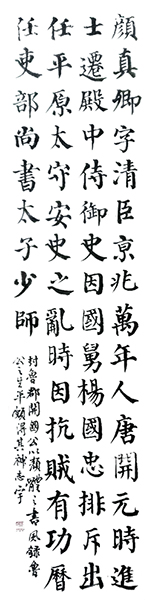 顏真卿字清臣京兆萬年人唐開元時進
士遷殿中侍御史因國舅楊國忠排斥出
任平原太守安史之亂時因抗賊有功曆
任吏部尚書太子少師
封魯郡開國公以顏體之書風錄魯
公之生平願得其神志宇